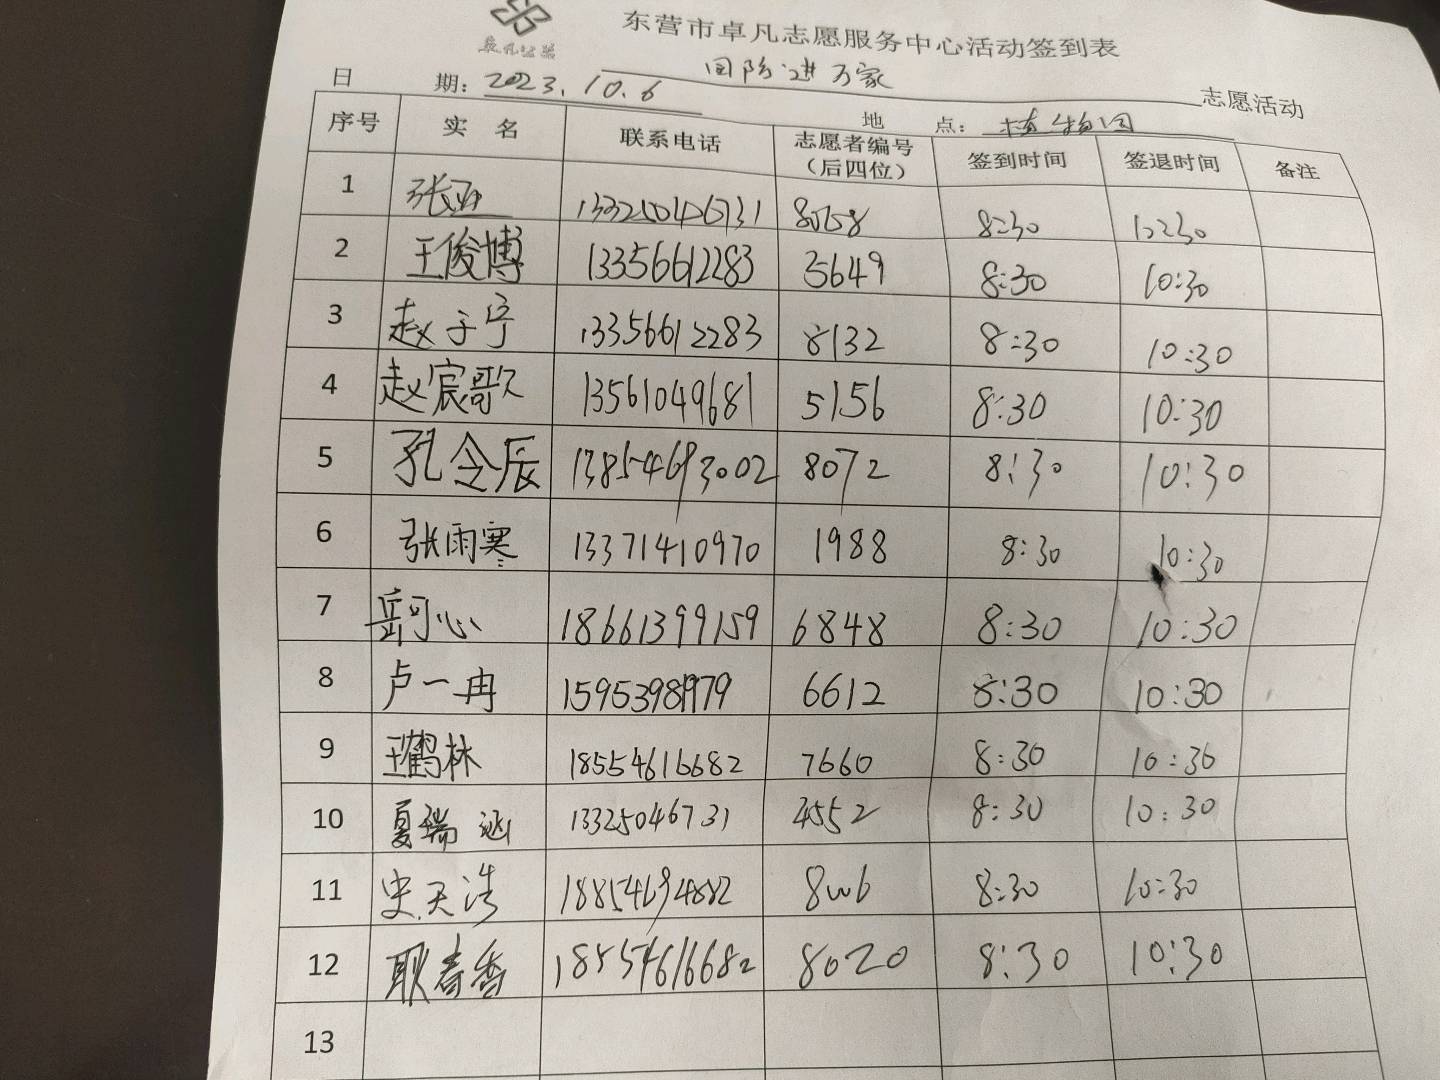 卓凡公益
东营市卓凡志愿服务中心活动签到表
团队进万家 志愿活动
日 期: 2023.10.6 地 点: 植物园
序号 实 名 联系电话 志愿者编号(后四位) 签到时间 签退时间 备注
1 8:30
2 王俊博 13356612283 3649 8:30 10:30
3 赵子宁 13356612283 8132 8:30 10:30
4 赵宸歌 13561049681 5156 8:30 10:30
5 孔令辰 13854693002 8072 8:30 10:30
6 张雨寒 13371410970 1988 8:30 10:30
7 岳可心 18661399159 6848 8:30 10:30
8 卢一冉 15953981979 6612 8:30 10:30
9 王鹤林 18554616682 7660 8:30 10:30
10 夏瑞涵 13325046731 4552 8:30 10:30
11 史天浩 18854694882 8:30 10:30
12 耿春香 18554616682 8020 8:30 10:30
13